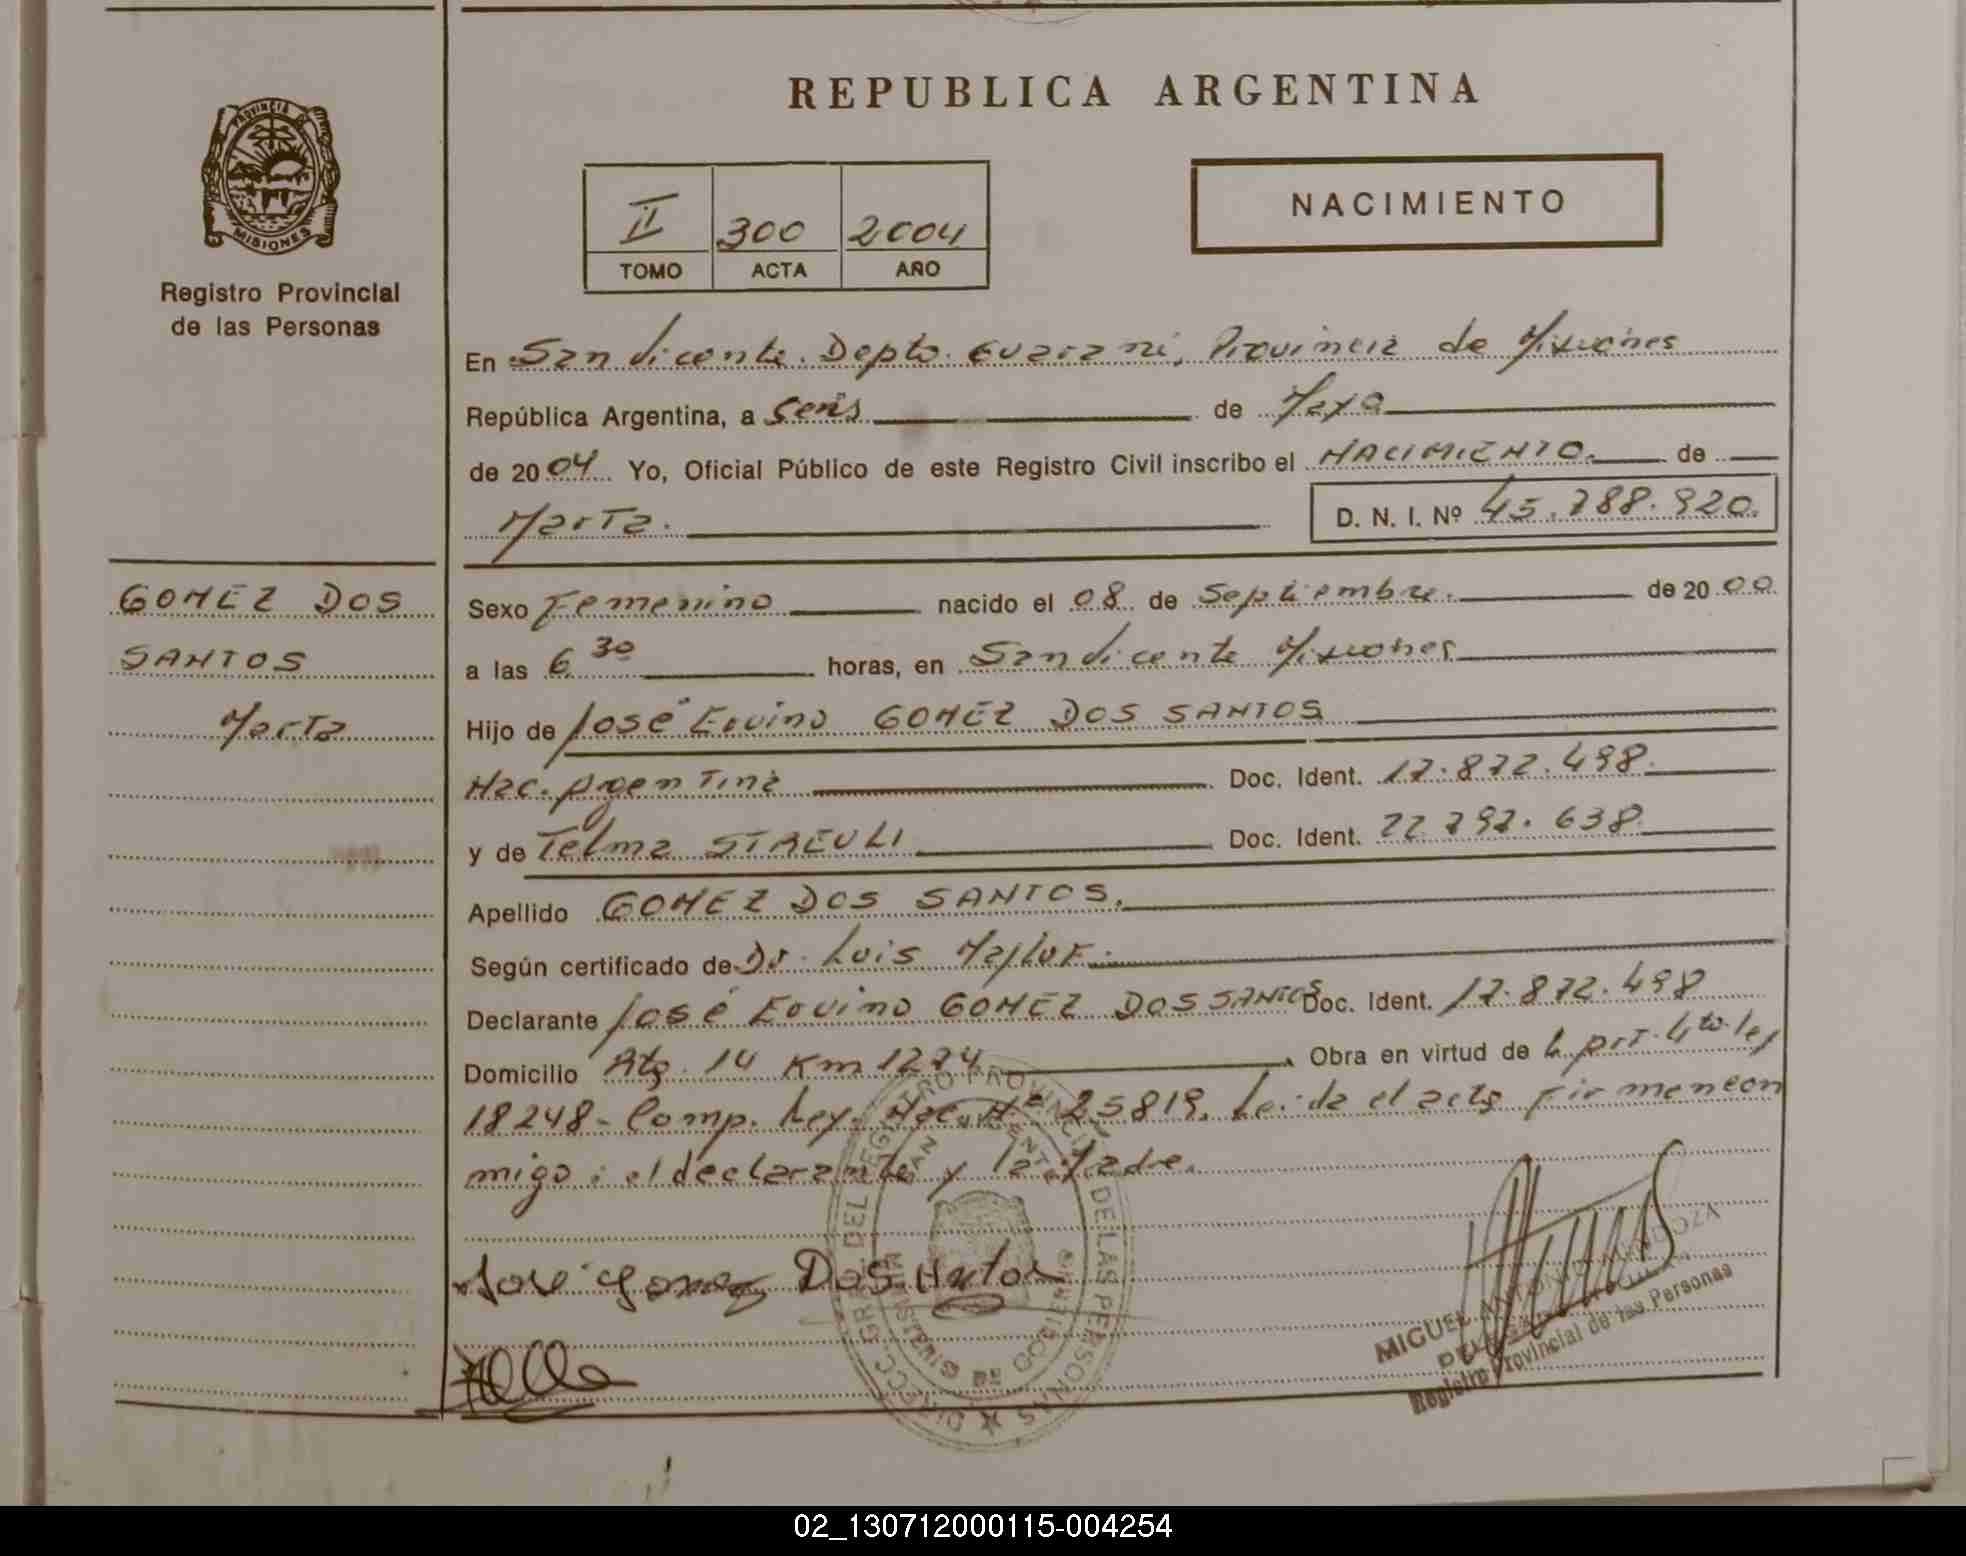 REPUBLICA ARGENTINA
PROVINCIA DE
MISIONES
Registro Provincial
de las Personas
II 300 2004
TOMO ACTA AÑO
NACIMIENTO
En San Vicente. Depto. Guarani, Provincia de Misiones
República Argentina, a Seis de Mayo
de 2004 Yo, Oficial Público de este Registro Civil inscribo el NACIMIENTO. de
Marta. D. N. I. Nº 45.788.920.
GOMEZ DOS
SANTOS
Marta
Sexo Femenino nacido el 08 de Septiembre. de 2000
a las 6 30 horas, en San Vicente Misiones
Hijo de José Eovino GOMEZ DOS SANTOS
Nac. Argentina Doc. Ident. 17.872.498.
y de Telma STAEULI Doc. Ident. 22.792.638
Apellido GOMEZ DOS SANTOS.
Según certificado de Dr. Luis
Declarante José Eovino GOMEZ DOS SANTOS Doc. Ident. 17.872.498
Domicilio Ruta 14 Km 1274 Obra en virtud de L. prt. 4to. ley
18248- Comp. Ley. Nac. Nº 25819. Leida el acta Firmen con
migo: el declarante y la Madre.
José Gomez Dos Santos
DIRECC. GRAL. DEL REGISTRO PROVINCIAL DE LAS PERSONAS
SAN VICENTE
MINISTERIO DE GOBIERNO
MIGUEL ANTONIO MENDOZA
Registro Provincial de las Personas
02_130712000115-004254